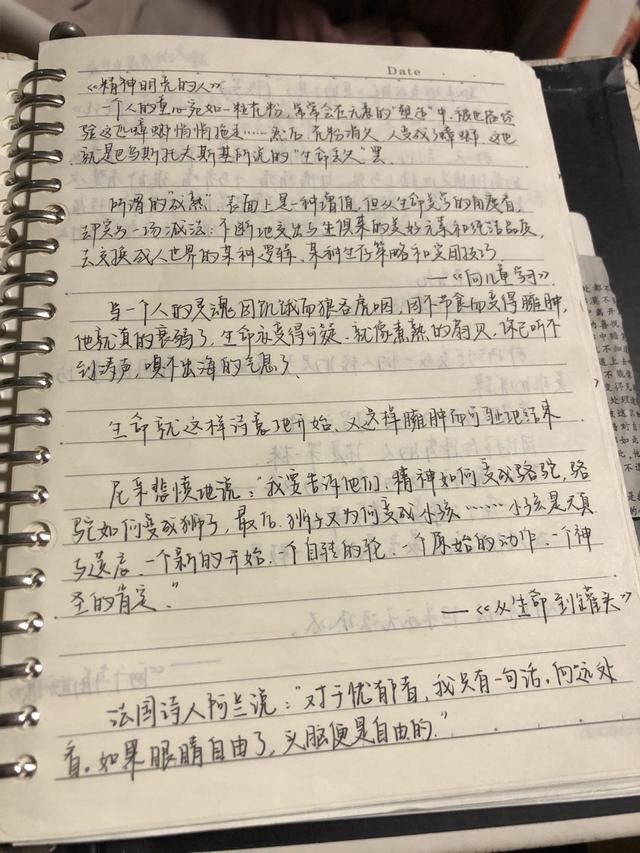 Date
《精神明亮的人》
一个人的童心宛如一粒花粉,常常会在无意的"塑造"中,被世俗经
验这匹蟑螂悄悄拖走……然后,花粉消失,人变成了蟑螂。这也
就是巴乌斯托夫斯基所说的"生命丢失"罢。
所谓的"成熟",表面上是一种增值,但从生命美学的角度看,
却实为一场减法:不断地交出与生俱来的美好元素和纯洁品质,
去交换成人世界的某种逻辑、某种生存策略和实用技巧。
——《向儿童学习》
当一个人的灵魂因饥饿而狼吞虎咽,因不节食而变得臃肿,
他就真的衰弱了,生命亦变得可疑、就像煮熟的扇贝,你已听不
到涛声,嗅不出海的气息了。
生命就这样诗意地开始,又这样臃肿而可耻地结束
尼采悲愤地说:"我要告诉他们,精神如何变成骆驼,骆
驼如何变成狮子,最后,狮子又为何变成小孩……小孩是天真
与遗忘,一个新的开始,一个自转的轮,一个原始的动作,一个神
圣的肯定。"
——《从生命到罐头》
法国诗人阿兰说:"对于忧郁者,我只有一句话,向远处
看。如果眼睛自由了,头脑便是自由的."